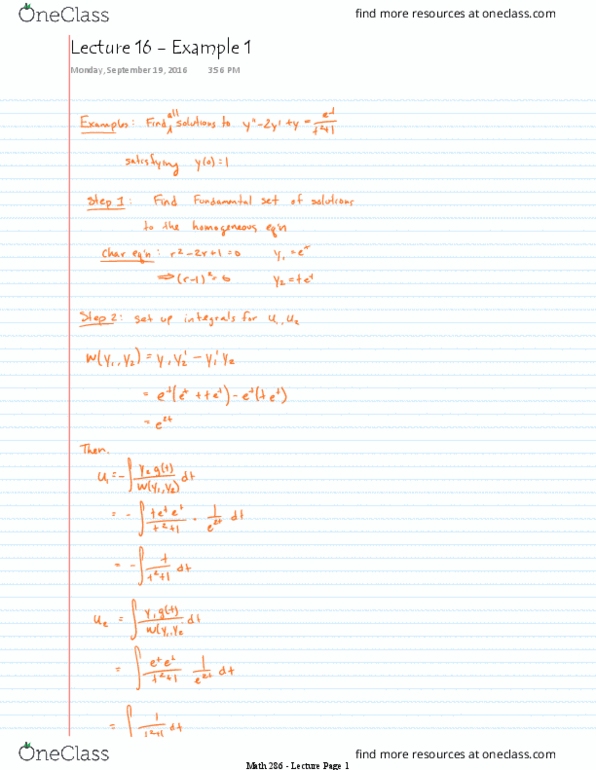 OneClass
find more resources at oneclass.com
Lecture 16 – Example 1
Monday, September 19, 2016 3:56 PM
Examples: Find all solutions to y'' - 2y' + y = e^t/(t²+1)
satisfying y(0) = 1
Step 1: Find Fundamental set of solutions
to the homogeneous eq'n
Char eq'n: r² - 2r + 1 = 0 y₁ = e^t
⇒ (r-1)² = 0 y₂ = te^t
Step 2: set up integrals for u₁, u₂
W(y₁, y₂) = y₁y₂' - y₁'y₂
= e^t(e^t + te^t) - e^t(te^t)
= e^{2t}
Then,
u₁ = -∫ y₂g(t)/W(y₁,y₂) dt
= -∫ te^t e^t/(t²+1) · 1/e^{2t} dt
= -∫ t/(t²+1) dt
u₂ = ∫ y₁g(t)/W(y₁,y₂ dt
= ∫ e^t e^t/(t²+1) 1/e^{2t} dt
= ∫ 1/(t²+1) dt
OneClass
find more resources at oneclass.com
Math 286 - Lecture Page 1